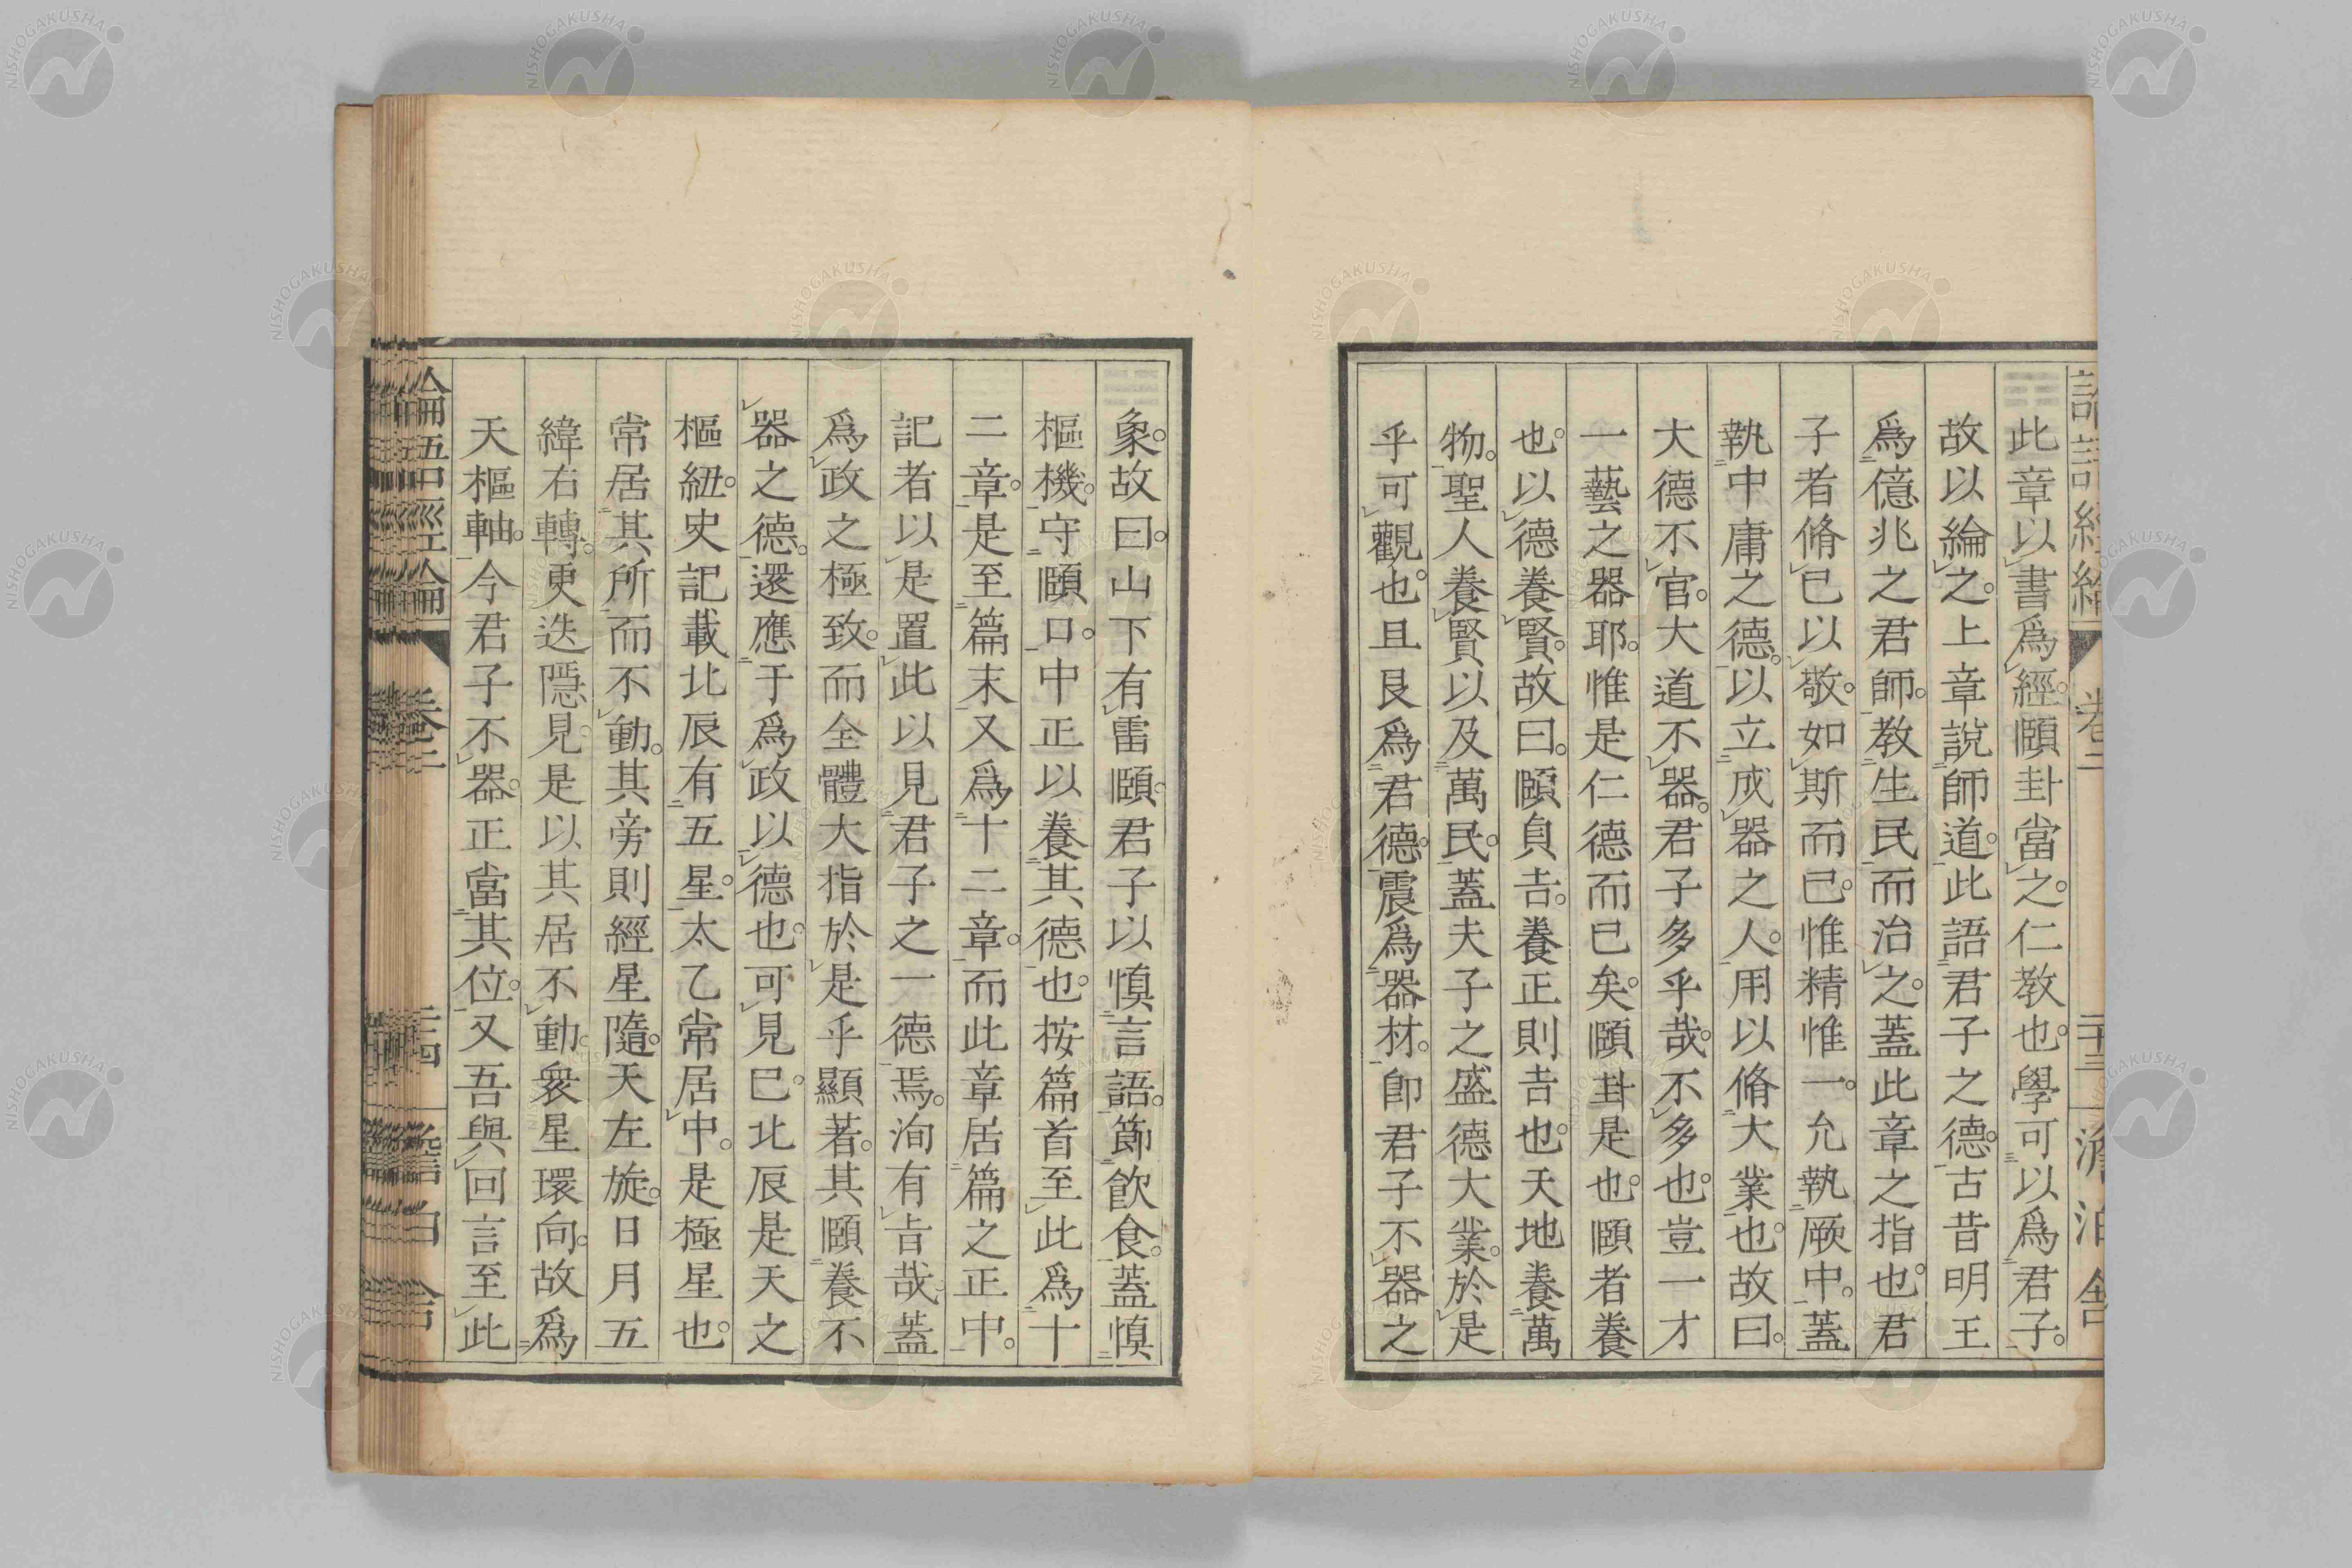 此章以書爲經。頤卦當之。仁教也。學可以爲君子。
故以綸之。上章說師道。此語君子之德。古昔明王
爲億兆之君師。教生民而治之。蓋此章之指也。君
子者脩已以敬。如斯而已。惟精惟一。允執厥中。蓋
執中庸之德。以立成器之人。用以脩大業也。故曰。
大德不官。大道不器。君子多乎哉。不多也。豈一才
一藝之器耶。惟是仁德而已矣。頤卦是也。頤者養
也。以德養賢。故曰。頤貞吉。養正則吉也。天地養萬
物。聖人養賢以及萬民。蓋夫子之盛德大業。於是
乎可觀也。且艮爲君德。震爲器材。卽君子不器之
象。故曰。山下有雷頤。君子以愼言語。節飮食。蓋愼
樞機。守頤口。中正以養其德也。按篇首至此爲十
二章。是至篇末又爲十二章。而此章居篇之正中。
記者以是置此以見君子之一德焉。洵有旨哉。蓋
爲政之極致。而全體大指於是乎顯著。其頤養不
器之德。還應于爲政以德也。可見已。北辰是天之
樞紐。史記載北辰有五星。太乙常居中。是極星也。
常居其所而不動。其旁則經星隨。天左旋。日月五
緯右轉。更迭隱見。是以其居不動。衆星環向。故爲
天樞軸。今君子不器。正當其位。又吾與回言至此
論語經綸
卷二
二十三
澹泊舍
論語經綸
卷二
二十四
澹泊舍
NISHOGAKUSHA